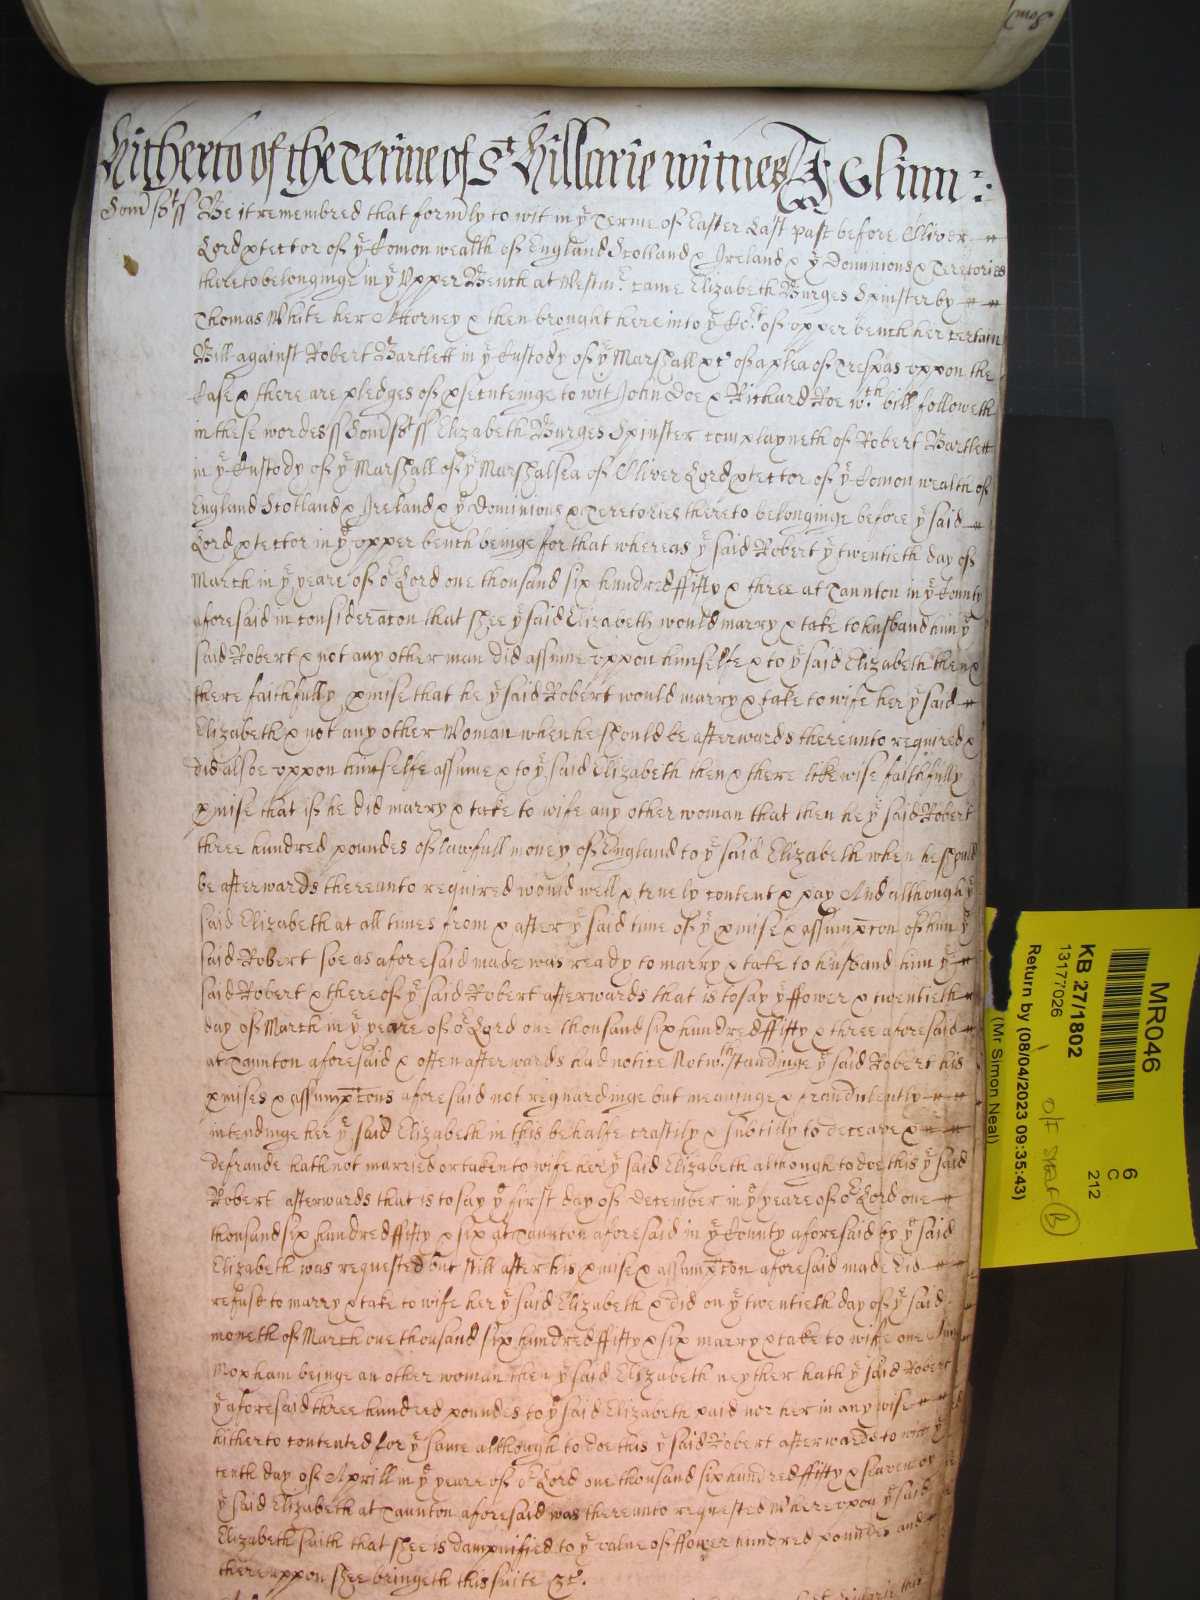 Hitherto of the Terme of St Hillarie witnes J Glinn:
Somst ss Be it remembred that formly to wit in ye Terme of Easter Last past before Oliver
Lord ptector of ye Comon wealth of England Scotland & Ireland & ye Dominions & Teretories
thereto belonginge in ye Upper Bench at Westmr came Elizabeth Burges Spinster by
Thomas White her Attorney & then brought here into ye Cort of upper bench her certain
Bill against Robert Bartlett in ye Custody of ye Marshall &c of a plea of Trespas uppon the
Case & there are pledges of psecuteinge to wit John Doe & Richard Roe wch bill followeth
in these wordes ss Somst ss Elizabeth Burges Spinster complayneth of Robert Bartlett
in ye Custody of ye Marshall of ye Marshalsea of Oliver Lord ptector of ye Comon wealth of
England Scotland & Ireland & ye Dominions & Teretories thereto belonginge before ye said
Lord ptector in ye upper bench beinge for that whereas ye said Robert ye twentieth day of
March in ye yeare of or Lord one thousand six hundred ffifty & three at Taunton in ye County
aforesaid in consideracon that shee ye said Elizabeth would marry & take to husband him ye
said Robert & not any other man did assume uppon himselfe & to ye said Elizabeth then &
there faithfully pmise that he ye said Robert would marry & take to wife her ye said
Elizabeth & not any other Woman when he should be afterwards thereunto required &
did alsoe uppon himselfe assume & to ye said Elizabeth then & there likewise faithfully
pmise that if he did marry & take to wife any other woman that then he ye said Robert
three hundred poundes of lawfull money of England to ye said Elizabeth when he should
be afterwards thereunto required would well & truely content & pay And although ye
said Elizabeth at all times from & after ye said time of ye pmise & assumpcon of him ye
said Robert soe as aforesaid made was ready to marry & take to husband him ye
said Robert & thereof ye said Robert afterwards that is to say ye ffower & twentieth
day of March in ye yeare of or Lord one thousand six hundred ffifty & three aforesaid
at Taunton aforesaid & often afterwards had notice Notwthstandinge ye said Robert his
pmises & assumpcons aforesaid not reguardinge but meaninge & fraudulently
intendinge her ye said Elizabeth in this behalfe craftily & subtilly to deceave &
defraude hath not married or taken to wife her ye said Elizabeth although to doe this ye said
Robert afterwards that is to say ye first day of December in ye yeare of or Lord one
thousand six hundred ffifty & six at Taunton aforesaid in ye County aforesaid by ye said
Elizabeth was requested but still after his pmise & assumpcon aforesaid made did
refuse to marry & take to wife her ye said Elizabeth & did on ye twentieth day of ye said
moneth of March one thousand six hundred ffifty & six marry & take to wife one Ann
Moxham beinge an other woman then ye said Elizabeth neyther hath ye said Robert
ye aforesaid three hundred poundes to ye said Elizabeth paid nor her in any wise
hitherto contented for ye same although to doe this ye said Robert afterwards to witt ye
tenth day of Aprill in ye yeare of or Lord one thousand six hundred ffifty & seaven by
ye said Elizabeth at Taunton aforesaid was thereunto requested Whereupon ye said
Elizabeth saith that shee is dampnified to ye value of ffower hundred poundes and
thereuppon shee bringeth this suite &c.
MR046
KB 27/1802
13177026
Return by (08/04/2023 09:35:43)
(Mr Simon Neal)
6
C
212
O/F Shelf B